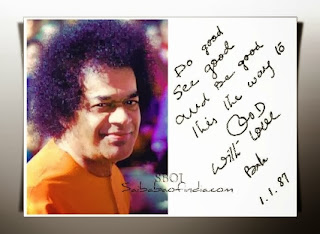 Do good
See good
and Be good
This the way to
GOD
With Love
Baba
1.1.87
SBOI
Saibabaofindia.com